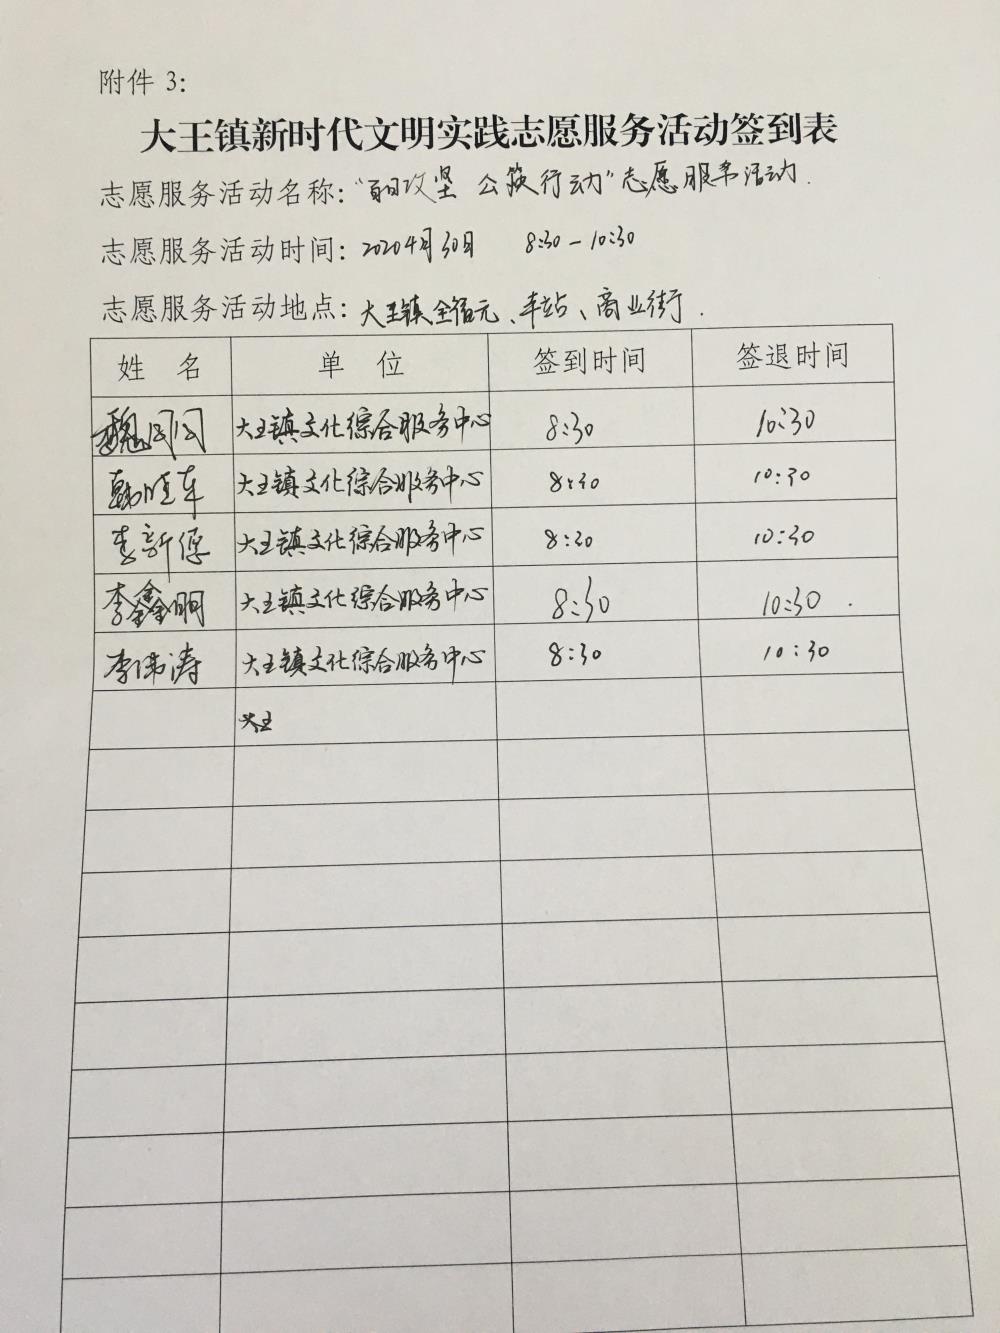 附件 3：
大王镇新时代文明实践志愿服务活动签到表
志愿服务活动名称：“百日攻坚 公筷行动”志愿服务活动.
志愿服务活动时间：2020 4月30日 8:30-10:30
志愿服务活动地点：大王镇全福元、车站、商业街.
姓 名 单 位 签到时间 签退时间
魏 大王镇文化综合服务中心 8:30 10:30
韩 大王镇文化综合服务中心 8:30 10:30
李新 大王镇文化综合服务中心 8:30 10:30
李鑫明 大王镇文化综合服务中心 8:30 10:30
李伟涛 大王镇文化综合服务中心 8:30 10:30
大王